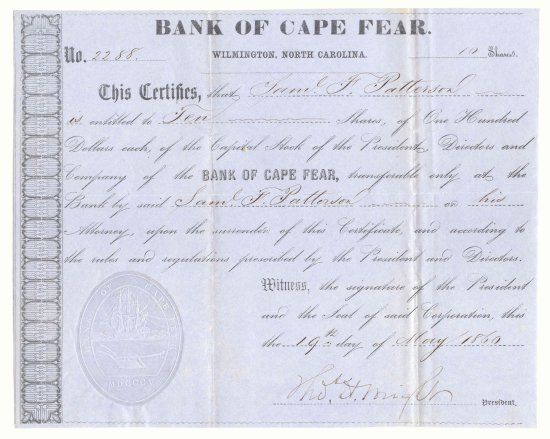 BANK OF CAPE FEAR.
No. 2288. WILMINGTON, NORTH CAROLINA. 10 Shares.
This Certifies, that Saml. F. Patterson
is entitled to Ten Shares, of One Hundred
Dollars each, of the Capital Stock of the President, Directors and
Company of the BANK OF CAPE FEAR, transferable only at the
Bank by said Saml. F. Patterson or his
Attorney, upon the surrender of this Certificate, and according to
the rules and regulations prescribed by the President and Directors.
Witness, the signature of the President
and the Seal of said Corporation, this
the 19th day of May 1860
Thos. H. Wright
President.
OF CAPE